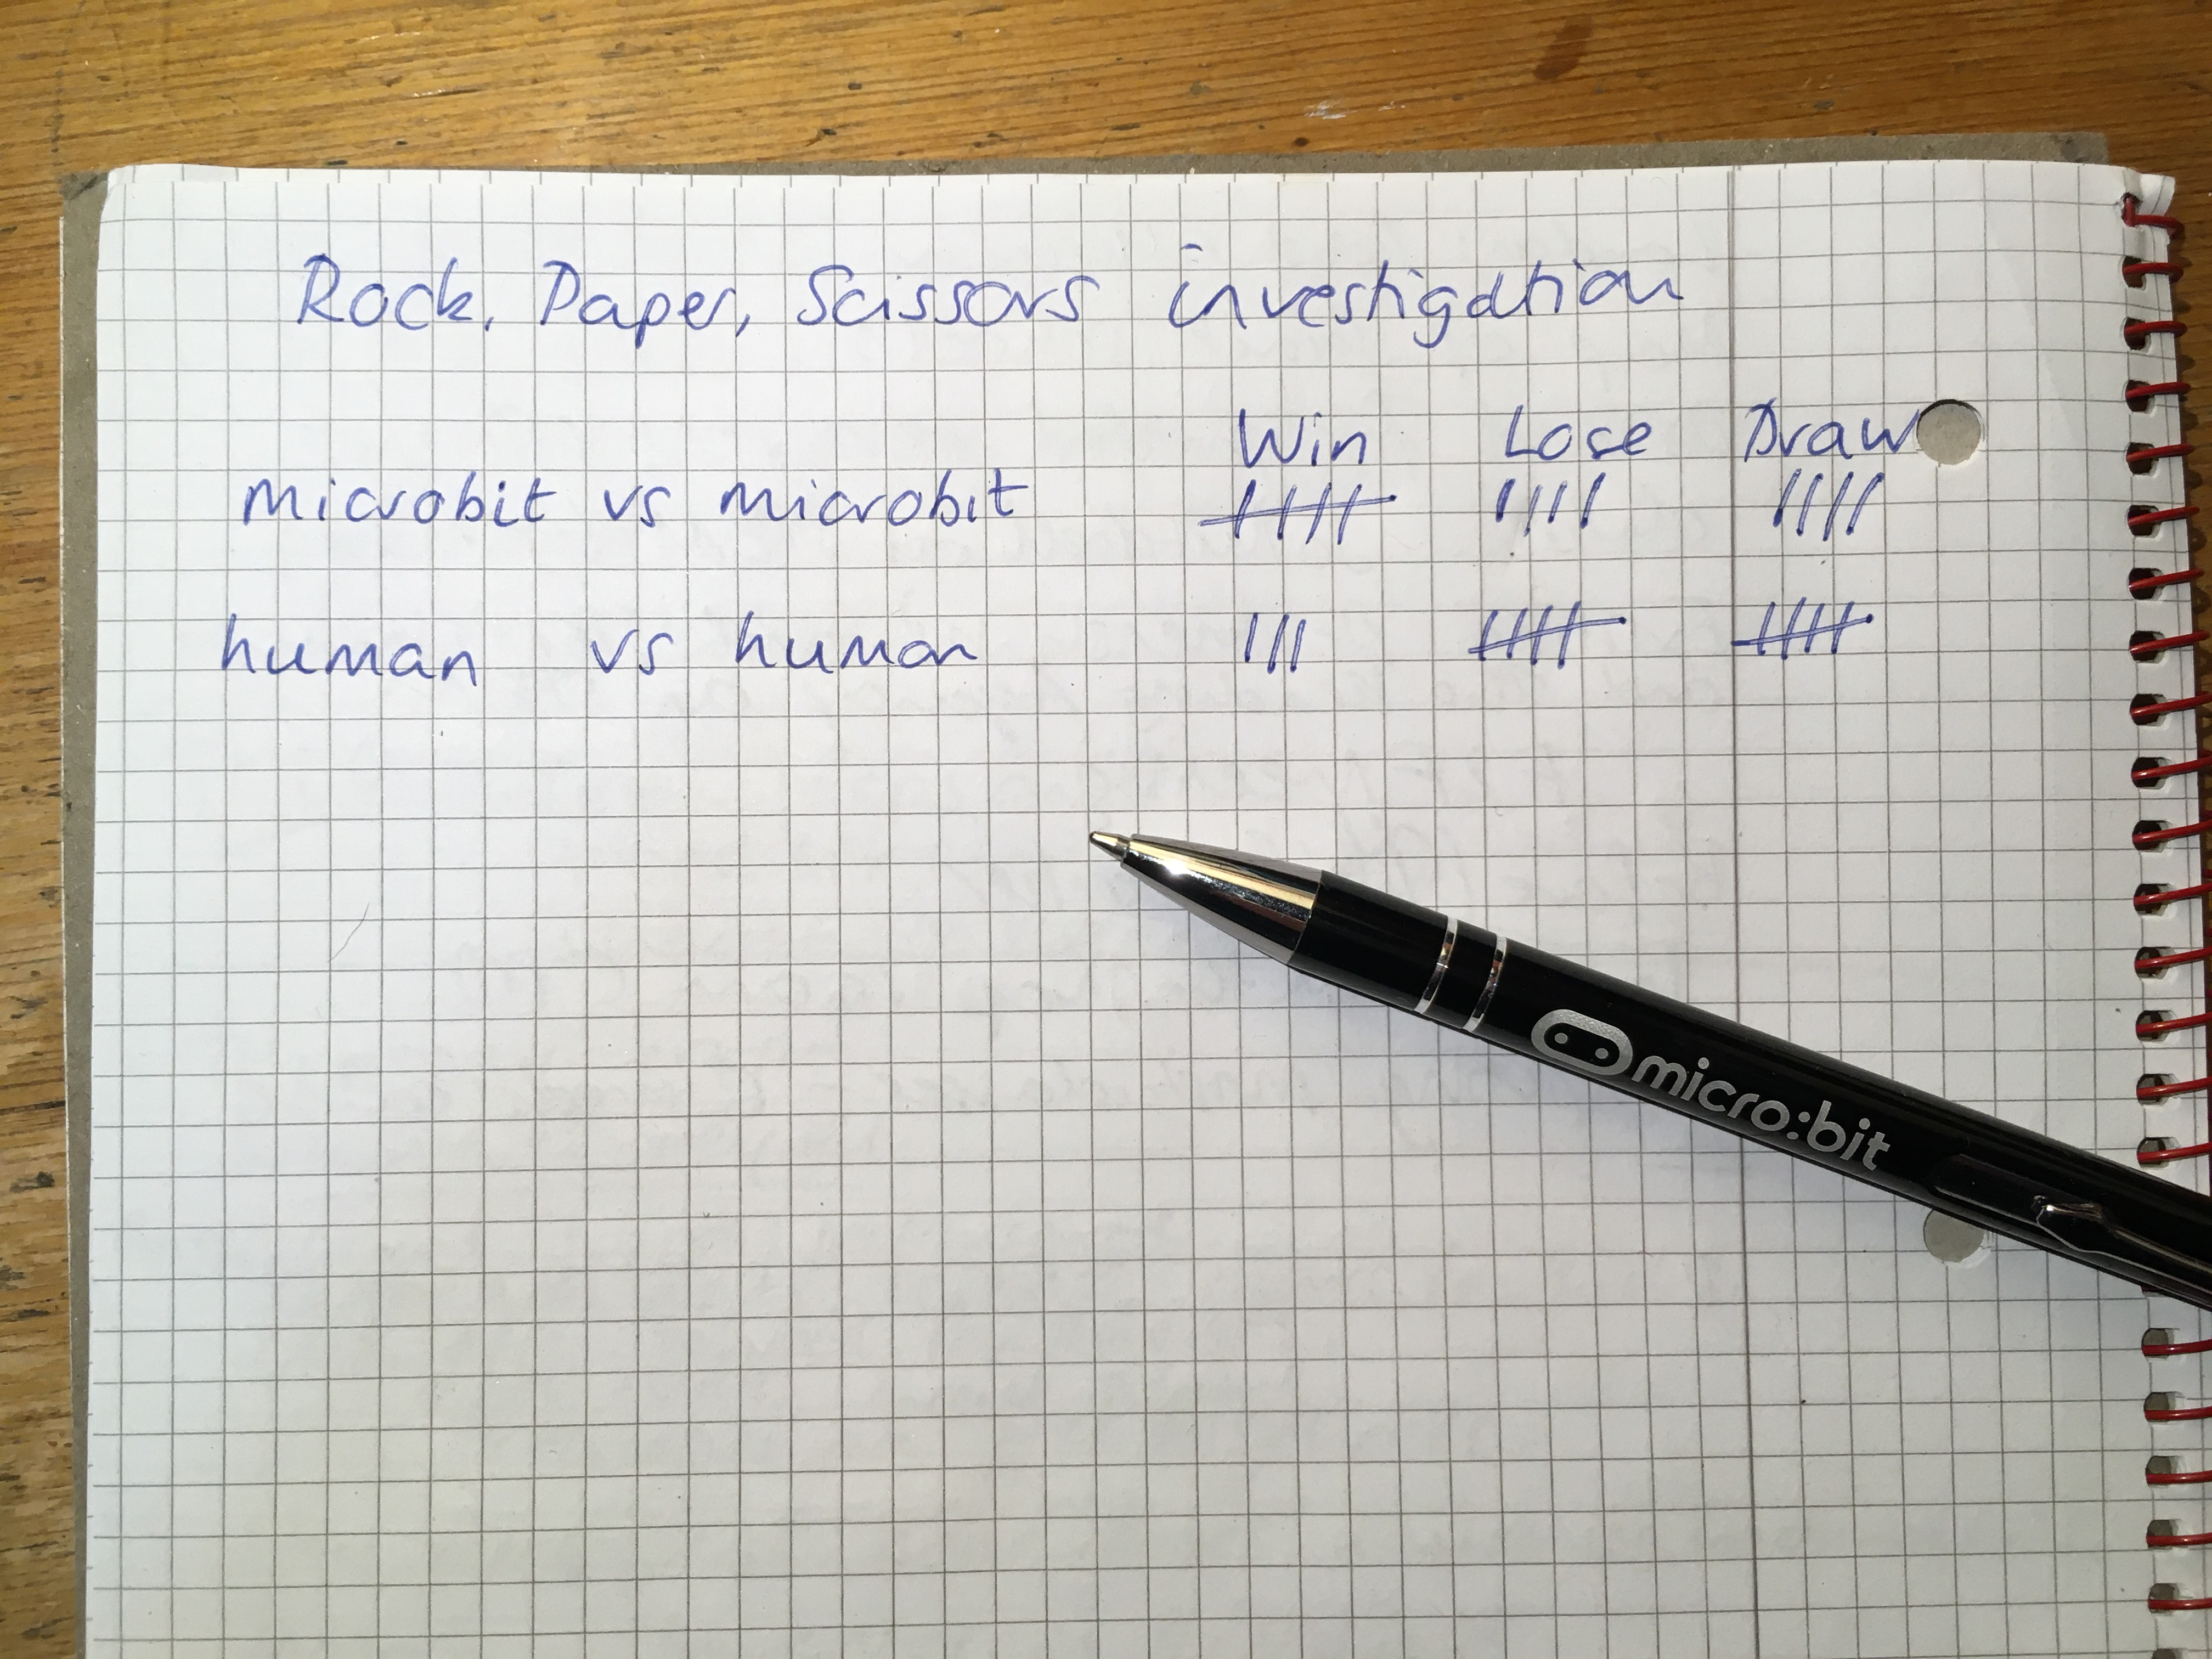 Rock, Paper, Scissors investigation
Win Lose Draw
microbit vs microbit
human vs human
micro:bit